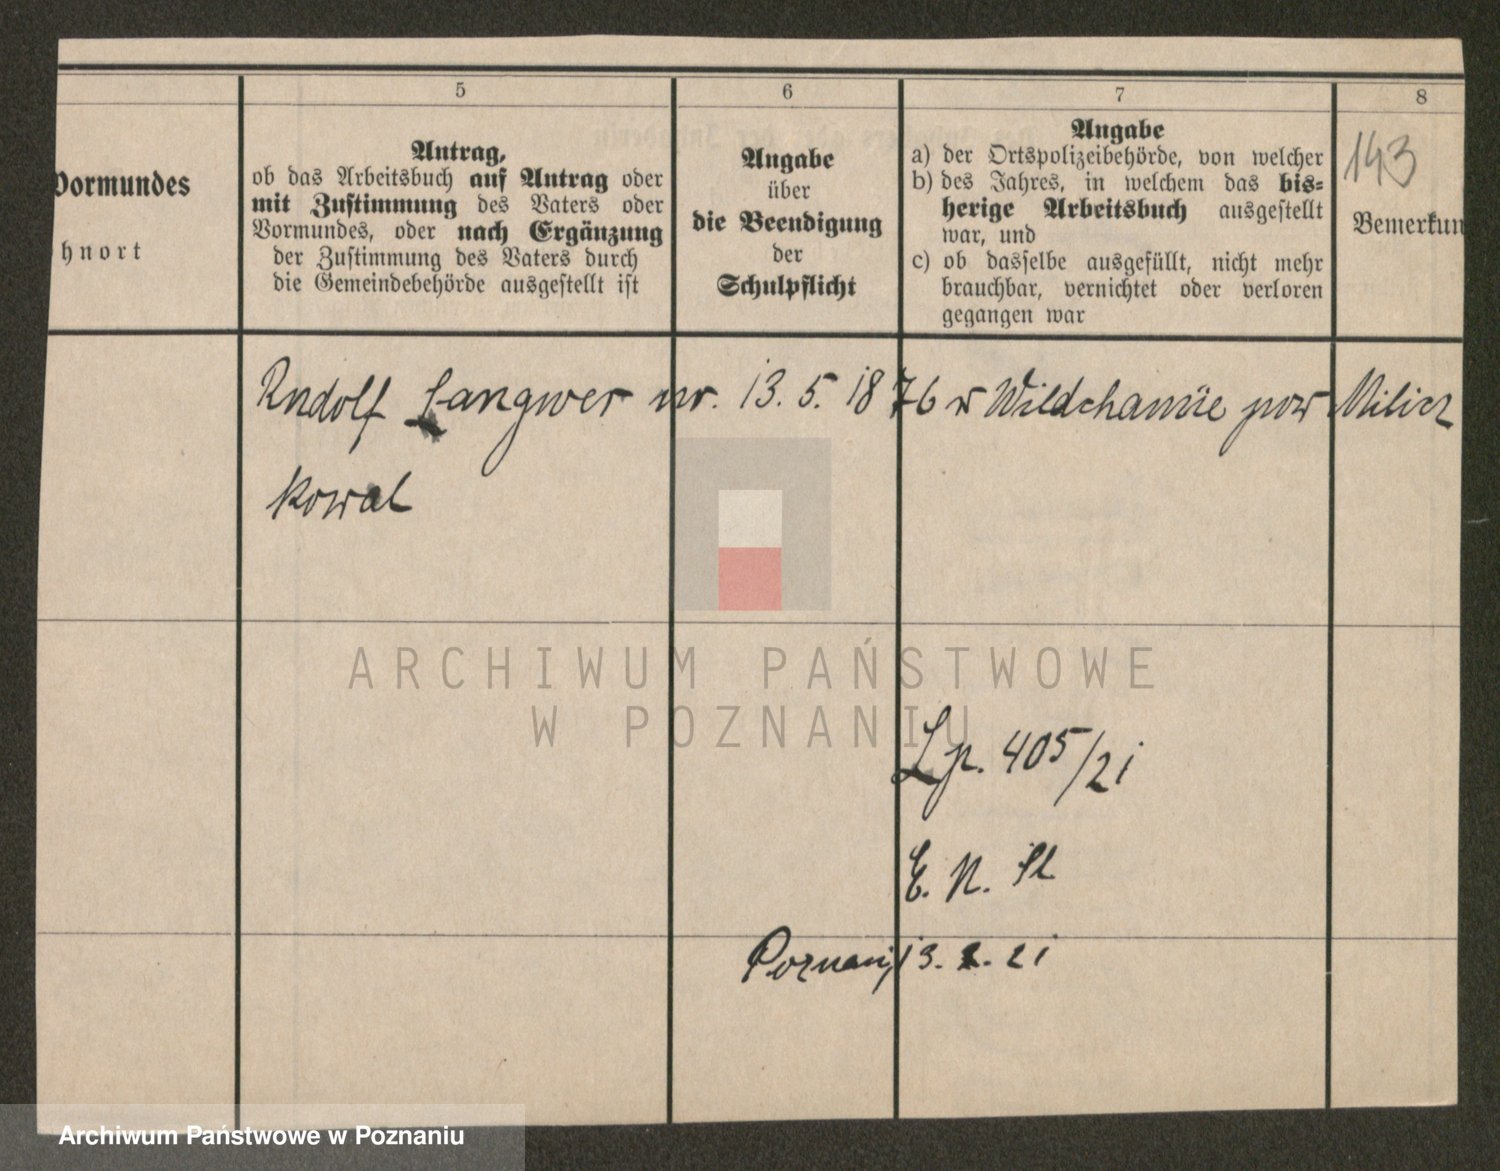 5
6
7
8
Vormundes
hnort
Antrag,
ob das Arbeitsbuch auf Antrag oder
mit Zustimmung des Vaters oder
Vormundes, oder nach Ergänzung
der Zustimmung des Vaters durch
die Gemeindebehörde ausgestellt ist
Angabe
über
die Beendigung
der
Schulpflicht
Angabe
a) der Ortspolizeibehörde, von welcher
b) des Jahres, in welchem das bis=
herige Arbeitsbuch ausgestellt
war, und
c) ob dasselbe ausgefüllt, nicht mehr
brauchbar, vernichtet oder verloren
gegangen war
143
Bemerkun
Rudolf Langwer ur. 13. 5. 1876 w Wildchamüe pow Milicz
Kowal
ARCHIWUM PAŃSTWOWE
W POZNANIU
Lp. 405/21
E. N.
Poznań, 13. 2. 21
Archiwum Państwowe w Poznaniu